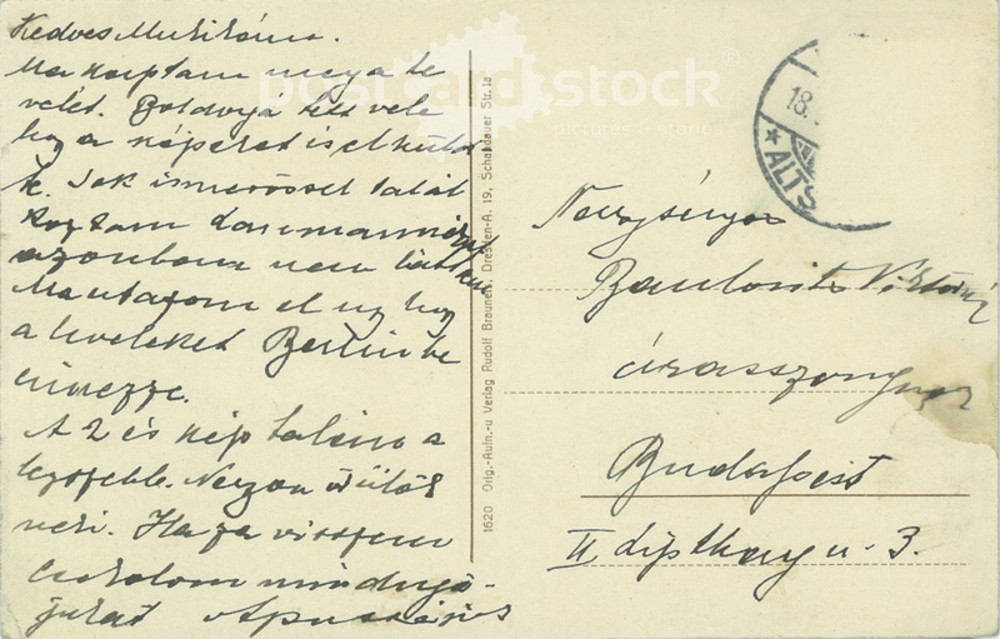 Kedves Mukikám.
Ma kaptam meg a le
velet. Boldoggá tett vele
hogy a képeket is elküld
te. Sok ismerőssel talál
koztam
azonban nem láttam
Ma utazom el úgy hogy
a leveleket Berlinbe
címezze.
A 2 és kép talán a
legszebb. Nagyon örülök
neki. Haza viszem
Csókolom mindnyá-
jukat Apuskájuk
1620 Orig.-Aufn.-u Verlag Rudolf Brauneis, Dresden-A. 19, Schandauer Str. 1a
postcard stock®
pictures & stories
18.
* ALTS
Nagyságos
Viktorné
úrasszonynak
Budapest
II u. 3.